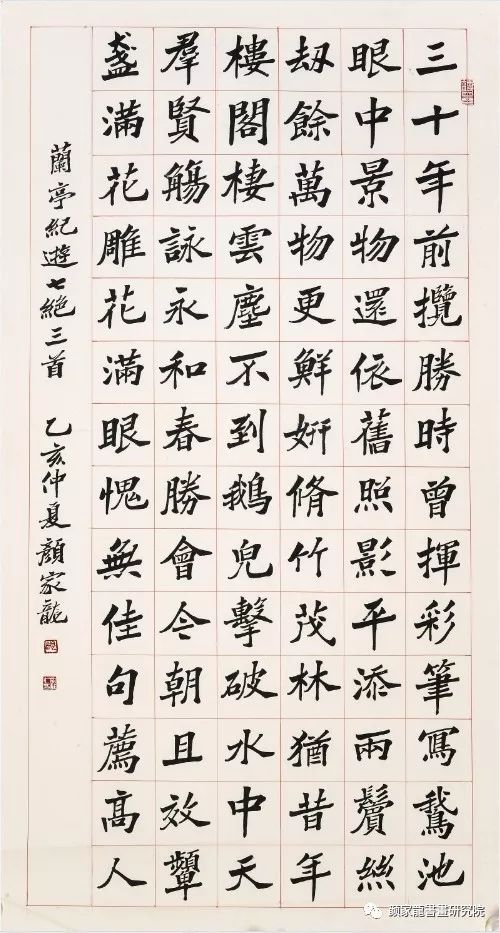 三十年前攬勝時曾揮彩筆寫鵞池
眼中景物還依舊照影平添兩鬢絲
劫餘萬物更鮮妍脩竹茂林猶昔年
樓閣棲雲塵不到鵝兒擊破水中天
羣賢觴詠永和春勝會今朝且效顰
盞滿花雕花滿眼愧無佳句薦高人
蘭亭紀遊七絕三首 乙亥仲夏顏家龍
颜家龍書畫研究院